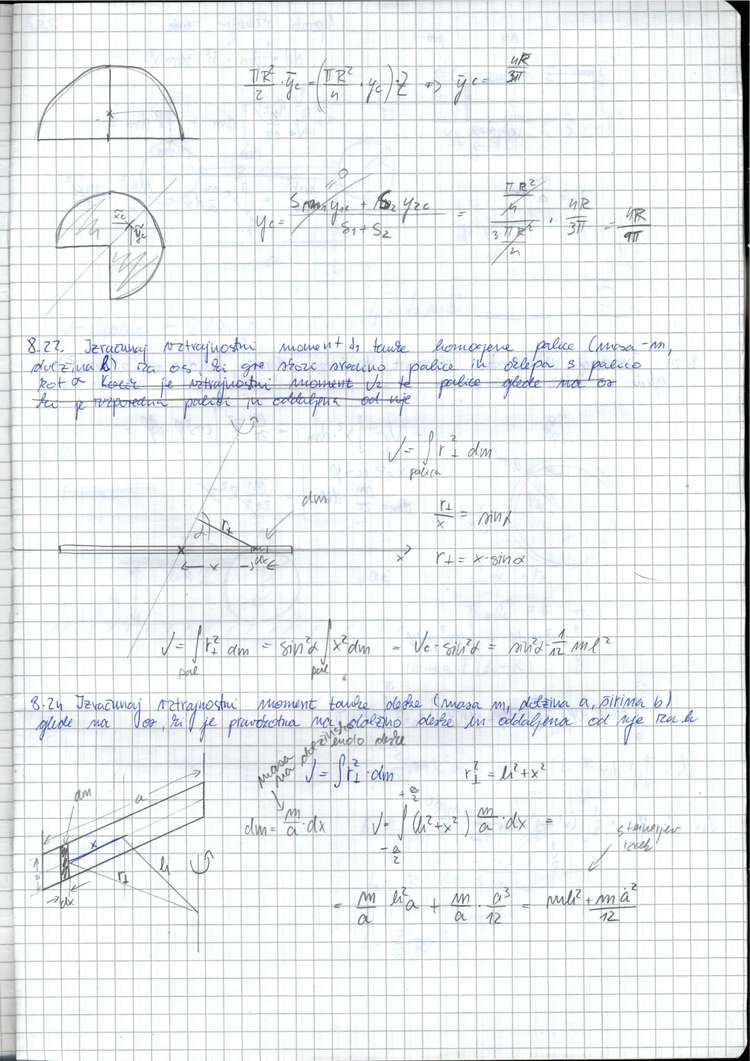 πR²/2 · ȳc = (πR²/4 · yc) · 2 ⇒ ȳc = 4R/3π
x̃c
ỹc
= 0
yc = (S₁ y₁c + S₂ y₂c)/(S₁ + S₂) = (πR²/4)/(3πR²/4) · 4R/3π = 4R/9π
8.22. Izračunaj vztrajnostni moment J₁ tanke homogene palice (masa - m,
dolžina l) za os, ki gre skozi sredino palice in oklepa s palico
kot α Kakšen je vztrajnostni moment J₂ te palice glede na os
ki je vzporedna palici in oddaljena od nje
J = ∫ r⊥² dm
palica
dm
r⊥/x = sinα
α
r⊥
r⊥ = x·sinα
x
dx
x
J = ∫ r⊥² dm = sin²α ∫ x² dm = Jc · sin²α = sin²α · 1/12 ml²
pal
pal
8.24 Izračunaj vztrajnostni moment tanke deske (masa m, dolžina a, širina b)
glede na os, ki je pravokotna na dolžino deske in oddaljena od nje za h
masa
na dolžinsko
enoto deske
J = ∫ r⊥² · dm
r⊥² = h² + x²
dm
a
dm = m/a · dx
J = ∫ (h² + x²) m/a · dx =
+a/2
-a/2
steinerjev
izrek
x
h
r⊥
dx
= m/a h² a + m/a · a³/12 = mh² + ma²/12